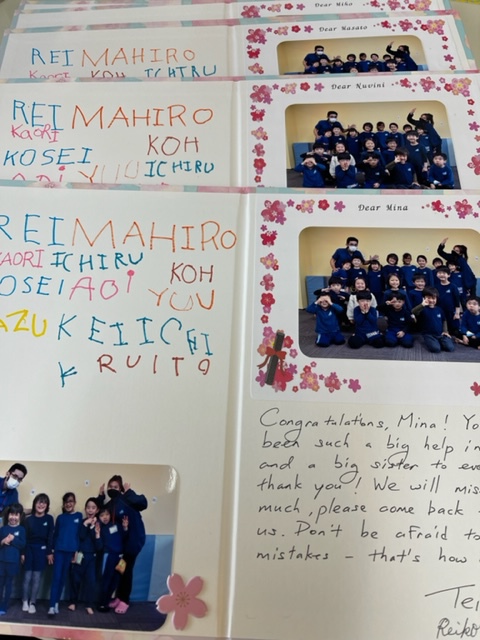 Dear Miko
Dear Masato
REI MAHIRO
Kaori KOH ICHIRU
Dear Nuvini
REI MAHIRO
KAORI
KOH
KOSEI
ICHIRU
AOi YUU
Dear Mina
REI MAHIRO
KAORI ICHIRU
KOH
OSEI AOi
YUU
AZU KEIICHI
RUITO
Congratulations, Mina! Yo
been such a big help in
and a big sister to eve
thank you! We will miss
much, please come back
us. Don't be afraid to
mistakes - that's how
Reiko